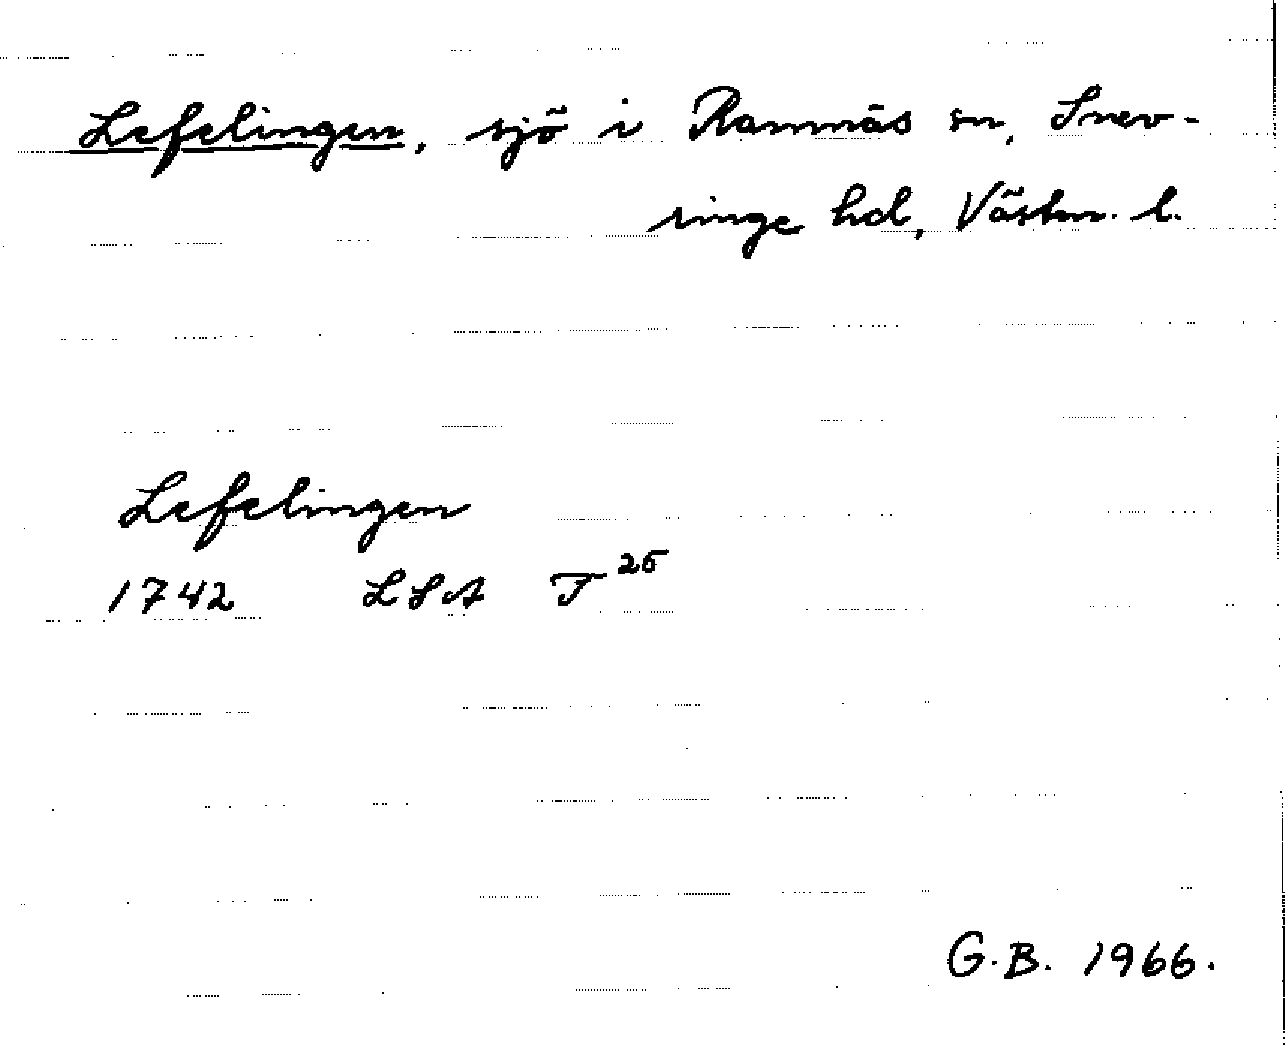 Lefelingen, sjö i Ramnäs sn, Snev-
ringe hd, Västm. l.
Lefelingen
1742 LSA T 26
G.B. 1966.